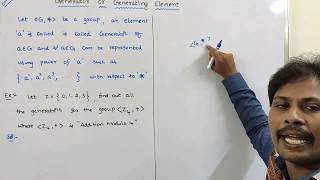 Generator or Generating Element
Let <G, *> be a group, an element
'a' is called is called Generator of
a∈G and ∀ a∈G can be represented
using power of 'a' such as
{ a¹, a², a³, - - - - } with respect to '*'
Ex:- Let Z = { 0, 1, 2, 3 } find out all
the generators for the group <Z₄, +>
where <Z₄, +> is "Addition modulo 4"
Sol:-